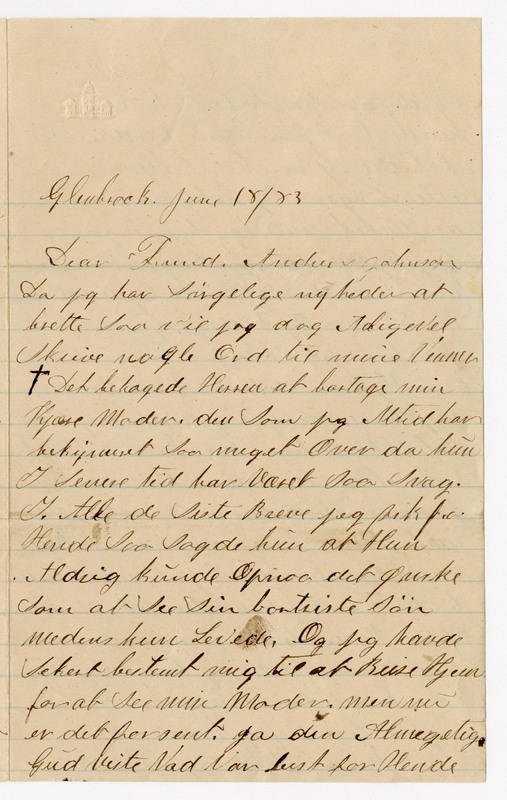 Glenbrock. June 18/83
Dear Friend. Andrew Johnson
Da jeg har Sørgelige nyheder at
brette Saa vil jeg dog Aligevel
Skrive nogle Ord til mine Venner
† Det behagede Herren at bortage min
Kjære Moder. den Som jeg Altid har
bekymret Saa meget Over da hun
I Senere tid har Været Saa Svag.
I Alle de Siste Breve jeg fik fra
Hende Saa Sagde hun at Hun
Aldrig kunde Opnaa det Ønske
Som at See Sin bortreiste Søn
medens hun Levede. Og jeg havde
Sekert bestemt mig til at Reise Hjem
for at See min Moder. men nu
er det for sent. ja den Almegtige
Gud Viste Vad Var best for Hende